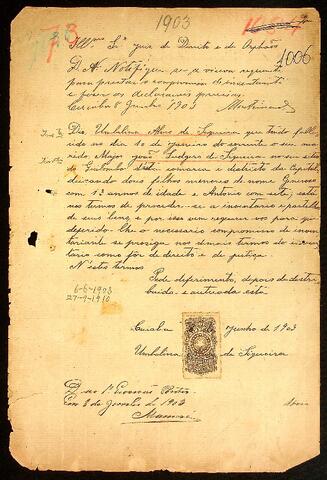 1903
1006
Illmo Sr Juiz de Direito e de Orphãos
D. A. Notifique-se a viuva
para prestar o compromisso de inventariante
e fazer as declarações precisas.
Cuiabá 8 Junho 1903
Diz Umbelina Alves de Siqueira que tendo falle
cido no dia 10 de do corrente o seu ma
rido, Major João Ludgero de Siqueira no seu sitio
do comarca e districto da Capital,
deixando dous filhos menores de nome Generoso
com 13 annos de idade e Antonio com sete, está
nos termos de proceder-se a inventario e partilha
de seus bens, e por isso vem requerer vos para que
deferido-lhe o necessario compromisso de inven
tariante se prosiga nos demais termos do inven
tario como fôr de direito e de justiça.
N'estes termos
Pede deferimento, depois de destri
buida e autuada esta.
6-6-1903
27-9-1910
Cuiabá junho de 1903
Umbelina de Siqueira
D. ao 1º
Em 8 de Junho de 1903